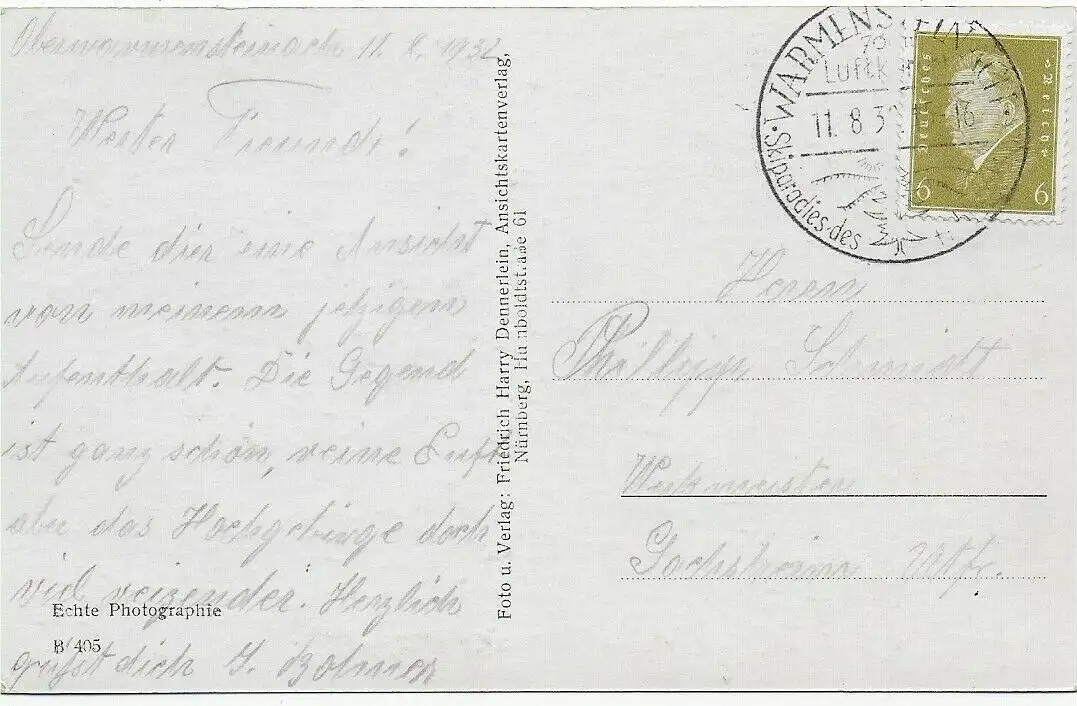 Oberwarmensteinach 11. 8. 1932
Werter Freund!
Sende dier eine Ansicht
von meinem jetzigem
Aufenthalt. Die Gegend
ist ganz schön, reine Luft
aber das Hochgebirge doch
viel reizender. Herzlich
grüßt dich J.
Echte Photographie
B 405
Foto u. Verlag: Friedrich Harry Dennerlein, Ansichtskartenverlag,
Nürnberg, Humboldtstraße 61
WARMENSTEINACH
Luftk
11.8.32 16
Skiparadies des
Deutsches Reich
6 6
Herrn
Phillipp Schmidt
Werkmeister
Gochsheim Ufr.